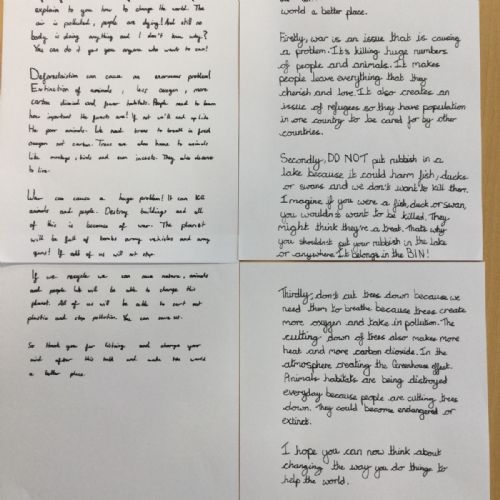 explain to you how to change the world. The
air is polluted, people are dying! And still no
body is doing anything and I don't know why?
You can do it yes you anyone who wants to can!
Deforestation can cause an enormous problem!
Extinction of animals, less oxygen, more
carbon dioxide and fewer habitats. People need to learn
how important the forests are! If not we'll end up like
the poor animals. We need trees to breath in fresh
oxygen not carbon. Trees are also homes to animals
like monkeys, birds and even insects. They also deserve
to live.
War can cause a huge problem! It can kill
animals and people. Destroy buildings and all
of this is because of war. The planet
will be full of bombs army vehicles and army
guns! If all of us will not stop.
If we recycle we can save nature, animals
and people. We will be able to change this
planet. All of us will be able to cut out
plastic and stop pollution. You can save us.
So thank you for listening and change your
mind after this talk and make the world
a better place.
world a better place.
Firstly, war is an issue that is causing
a problem. It's killing huge numbers
of people and animals. It makes
people leave everything that they
cherish and love. It also creates an
issue of refugees so they have population
in one country to be cared for by other
countries.
Secondly, DO NOT put rubbish in a
lake because it could harm fish, ducks
or swans and we don't want to kill them.
Imagine if you were a fish, duck or swan,
you wouldn't want to be killed. They
might think they're a treat. That's why
you shouldn't put your rubbish in the lake
or anywhere. It belongs in the BIN!
Thirdly, don't cut trees down because we
need them to breathe because trees create
more oxygen and take in pollution. The
cutting down of trees also makes more
heat and more carbon dioxide. In the
atmosphere creating the Greenhouse effect.
Animals habitats are being distroyed
everyday because people are cutting trees
down. They could become endangered or
extinct.
I hope you can now think about
changing the way you do things to
help the world.